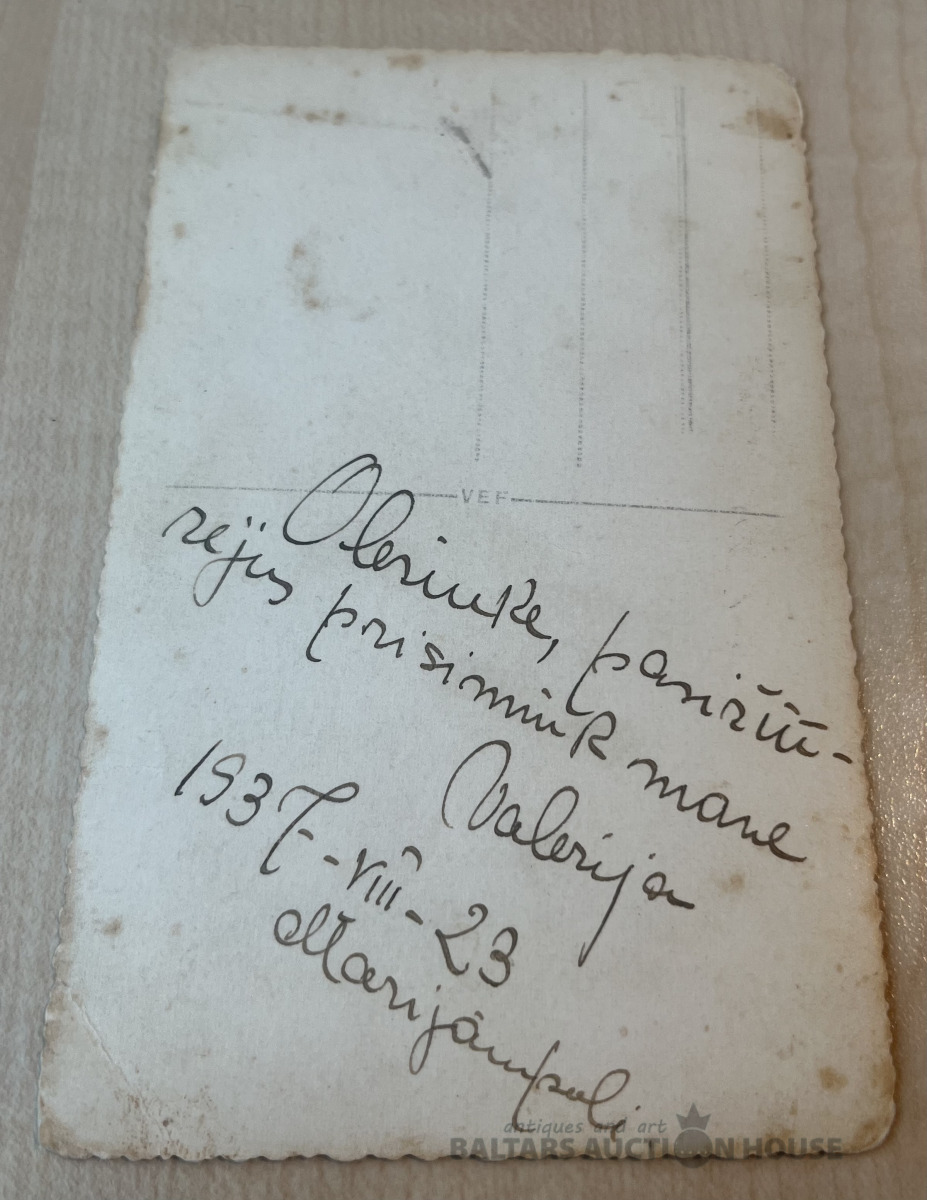 VEF
Olesiuke, pasižiū-
rėjus prisimink mane
Valerija
1937-VIII-23
Marijampolj.
antiques and art
BALTARS AUCTION HOUSE